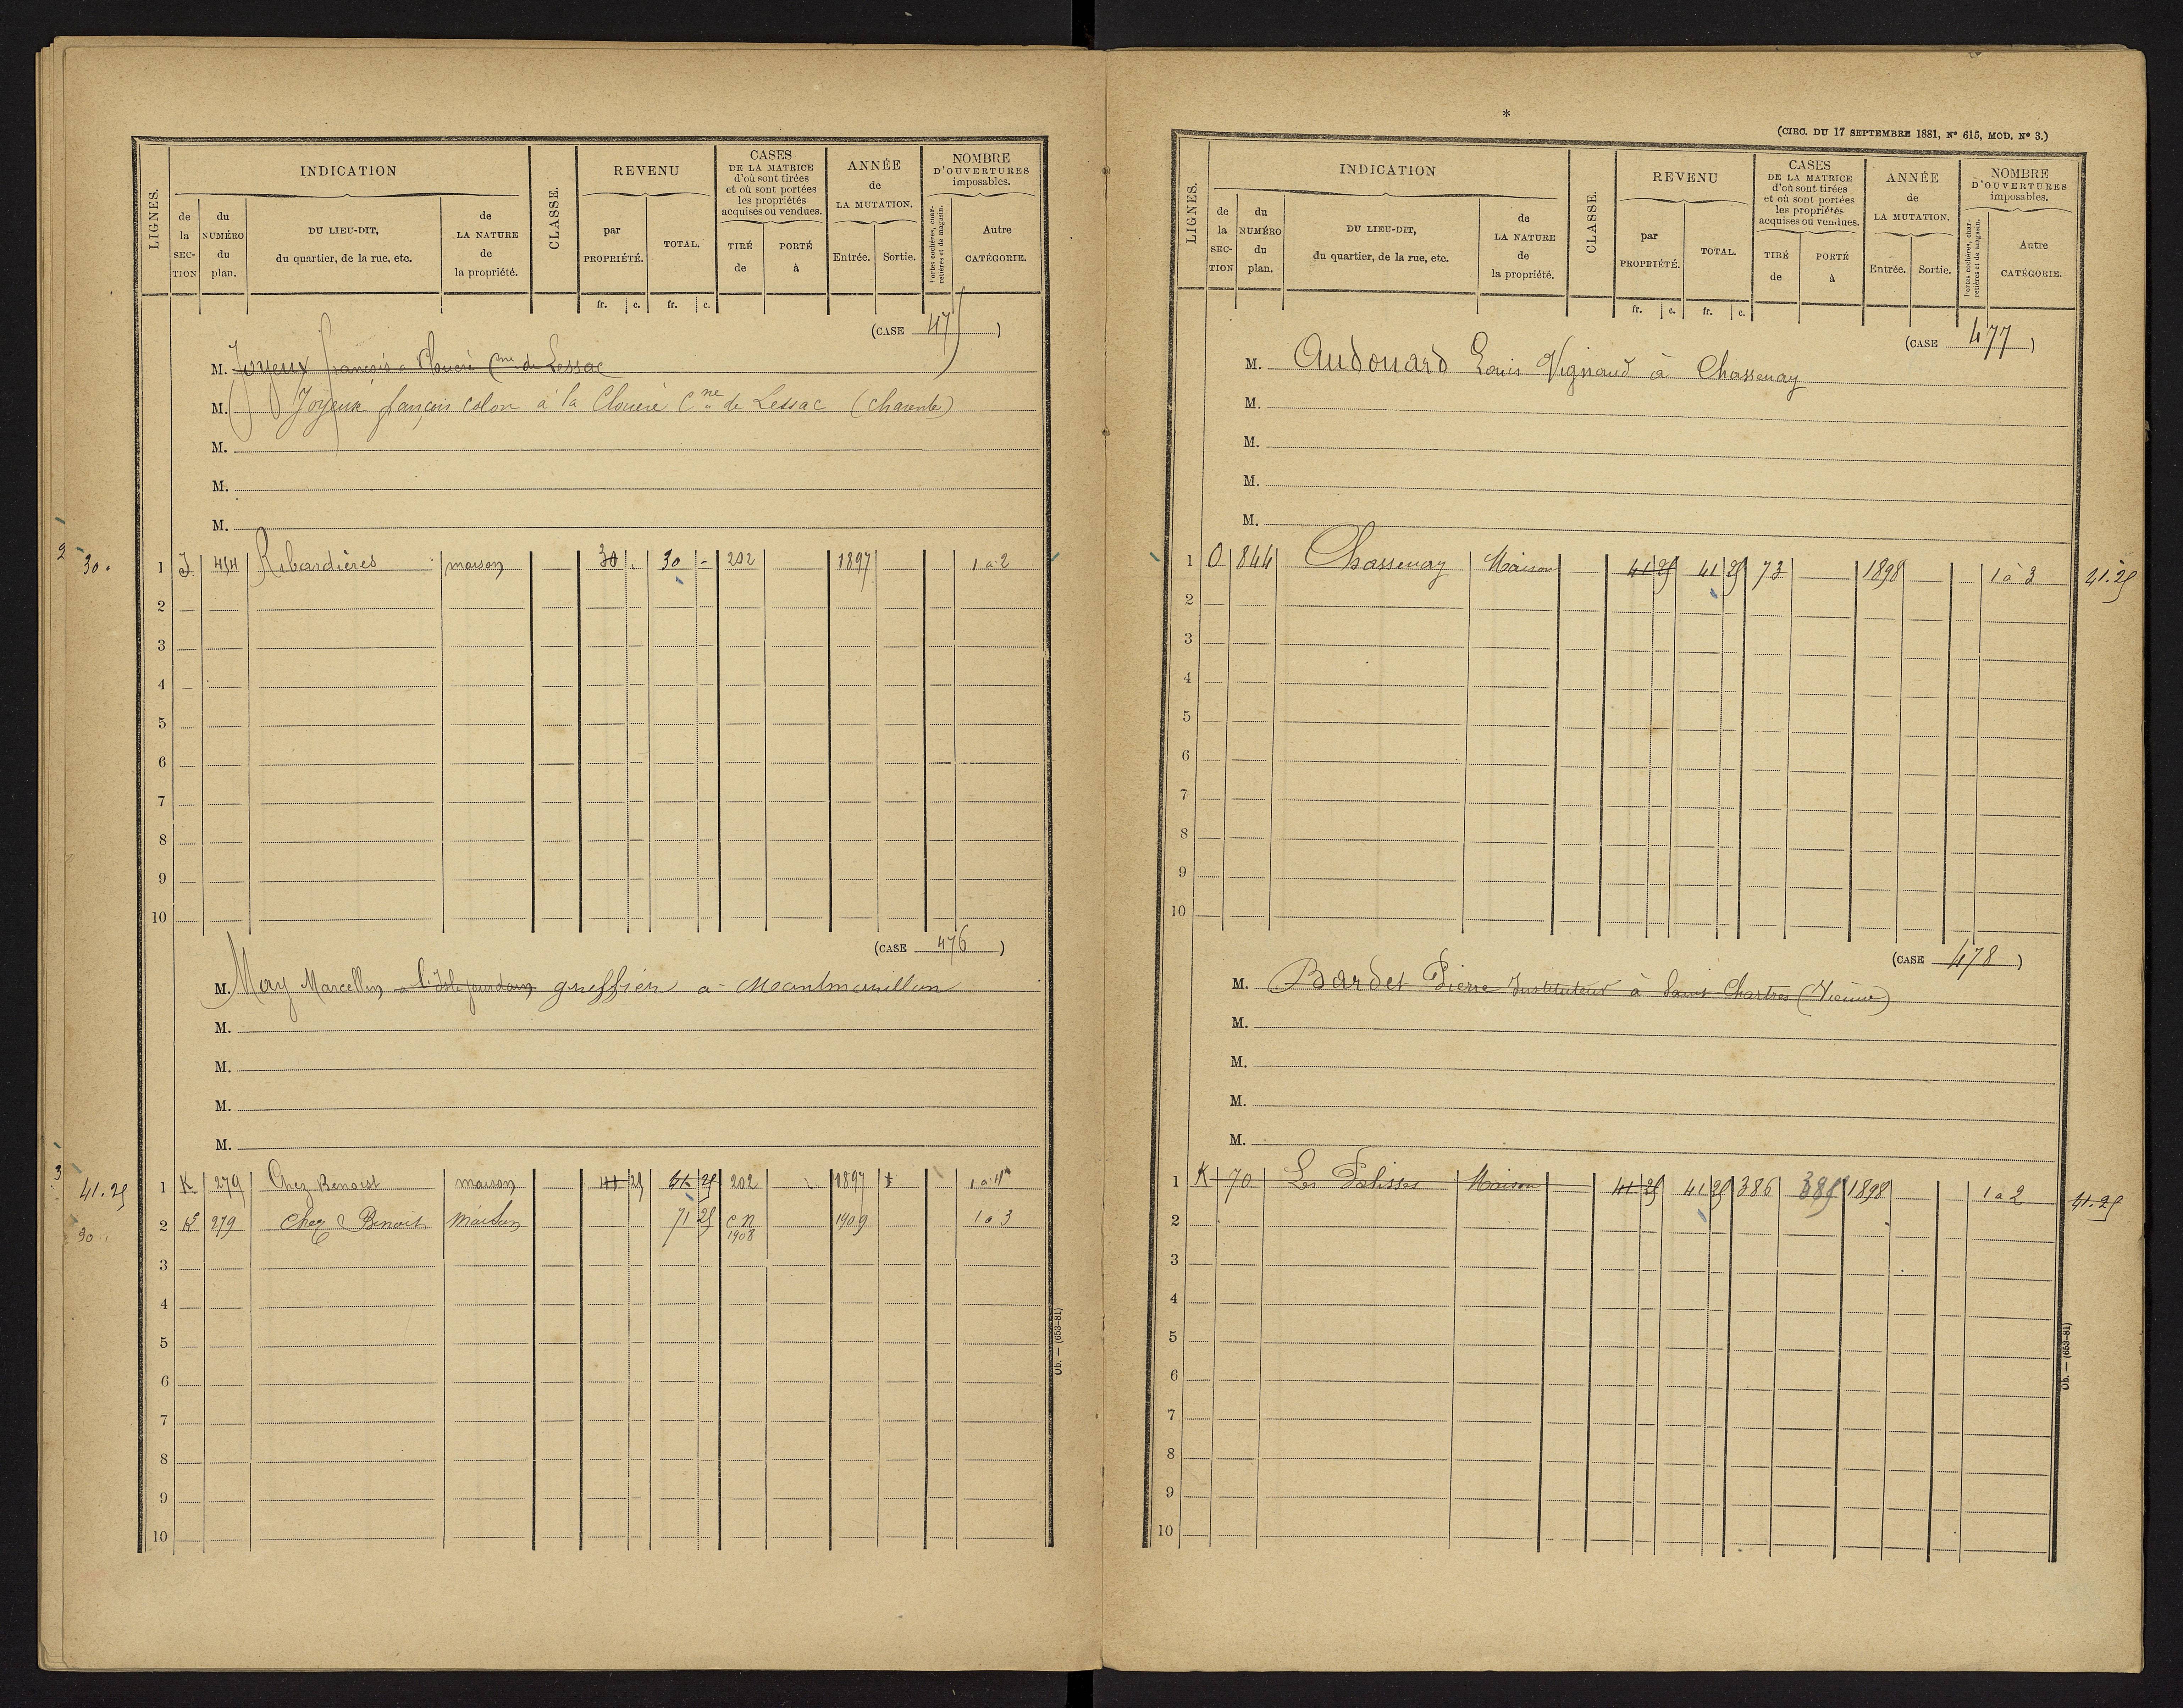 LIGNES.
INDICATION
de la SECTION
du NUMÉRO du plan.
DU LIEU-DIT, du quartier, de la rue, etc.
de LA NATURE de la propriété.
CLASSE.
REVENU
par PROPRIÉTÉ.
TOTAL.
fr. c. fr. c.
CASES DE LA MATRICE d'où sont tirées et où sont portées les propriétés acquises ou vendues.
TIRÉ de
PORTÉ à
ANNÉE de LA MUTATION.
Entrée. Sortie.
NOMBRE D'OUVERTURES imposables.
Portes cochères, charretières et de magasin.
Autre CATÉGORIE.
(CASE 475)
M. Joyeux françois a Clouère Cne de Lessac
M. Joyeux françois colon à la Clouère Cne de Lessac (Charente)
M.
M.
M.
2 30. 1 J 414 Ribardières maison 30 . 30 - 202 1897 1 a 2
2
3
4
5
6
7
8
9
10
(CASE 476)
M. May Marcellin a l'Isle jourdain greffier a Montmorillon
M.
M.
M.
M.
3 41.25 1 K 279 Chez Benoist maison 41 25 41 25 202 1897 1 a 4
30 2 K 279 Chez Benoist Maison 71 25 C N 1908 1909 1 a 3
3
4
5
6
7
8
9
10
Ob. — (653-81)
*
(CIRC. DU 17 SEPTEMBRE 1881, N° 615, MOD. N° 3.)
LIGNES.
INDICATION
de la SECTION
du NUMÉRO du plan.
DU LIEU-DIT, du quartier, de la rue, etc.
de LA NATURE de la propriété.
CLASSE.
REVENU
par PROPRIÉTÉ.
TOTAL.
fr. c. fr. c.
CASES DE LA MATRICE d'où sont tirées et où sont portées les propriétés acquises ou vendues.
TIRÉ de
PORTÉ à
ANNÉE de LA MUTATION.
Entrée. Sortie.
NOMBRE D'OUVERTURES imposables.
Portes cochères, charretières et de magasin.
Autre CATÉGORIE.
(CASE 477)
M. Audouard Louis Vignaud à Chassenay
M.
M.
M.
M.
1 O 844 Chassenay Maison 41 25 41 25 73 1898 1 à 3 41.25
2
3
4
5
6
7
8
9
10
(CASE 478)
M. Bardet Pierre Instituteur à Saint Chartres (Vienne)
M.
M.
M.
M.
1 K 70 Les Palisses Maison 41 25 41 25 386 1898 1 a 2 41.25
2
3
4
5
6
7
8
9
10
Ob. — (653-81)